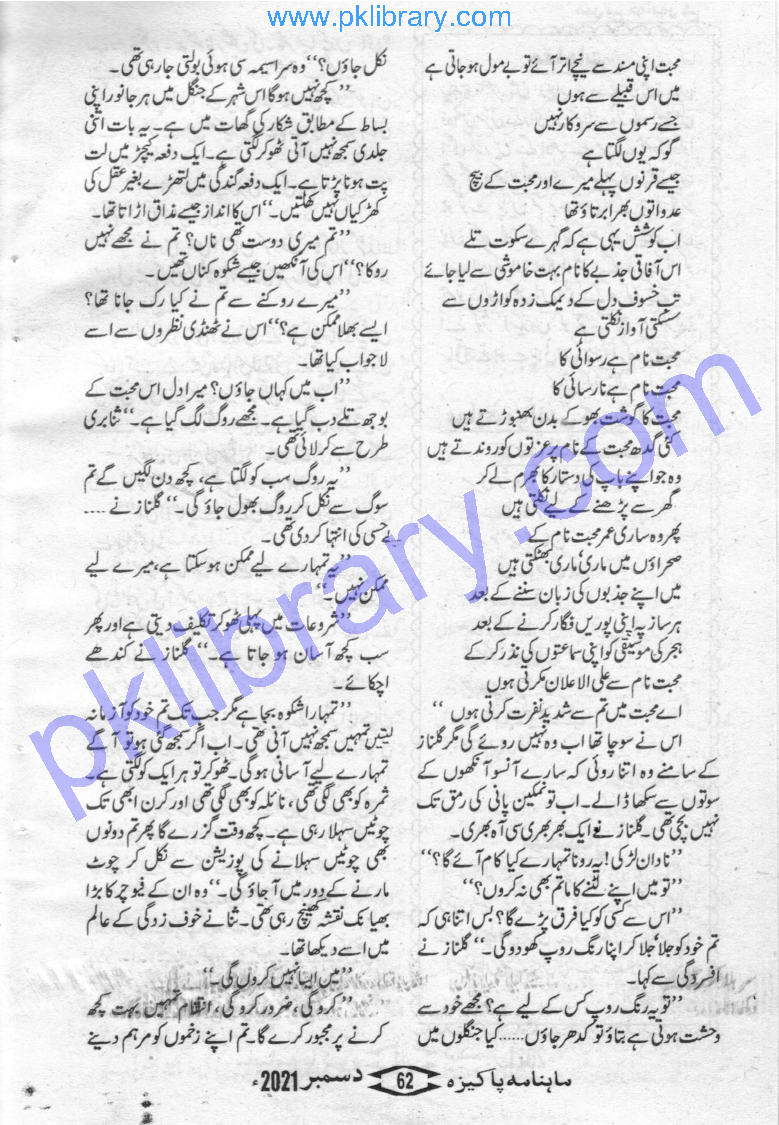 www.pklibrary.com
محبت اپنی مسند سے نیچے اتر آئے تو بے مول ہو جاتی ہے
میں اس قبیلے سے ہوں
جسے رسموں سے سروکار نہیں
گو کہ یوں لگتا ہے
جیسے قرنوں پہلے میرے اور محبت کے بیچ
عداوتوں بھرا برتاؤ تھا
اب کوشش یہی ہے کہ گہرے سکوت تلے
اس آفاقی جذبے کا نام بہت خاموشی سے لیا جائے
تب خسوف دل کے دیمک زدہ کواڑوں سے
سسکتی آواز نکلتی ہے
محبت نام ہے رسوائی کا
محبت نام ہے نارسائی کا
محبت کا گوشت بھوکے بدن بھنبوڑتے ہیں
کئی گدھ محبت کے نام پر عزتوں کو روندتے ہیں
وہ جو اپنے باپ کی دستار کا بھرم لے کر
گھر سے پڑھنے کے لیے نکلتی ہیں
پھر وہ ساری عمر محبت نام کے
صحراؤں میں ماری ماری بھٹکتی ہیں
میں اپنے جذبوں کی زبان سننے کے بعد
ہر ساز پہ اپنی پوریں فگار کرنے کے بعد
ہجر کی موسیقی کو اپنی سماعتوں کی نذر کر کے
محبت نام سے علی الاعلان مکرتی ہوں
اے محبت میں تم سے شدید نفرت کرتی ہوں ‘‘
اس نے سوچا تھا اب وہ نہیں روئے گی مگر گلناز
کے سامنے وہ اتنا روئی کہ سارے آنسو آنکھوں کے
سوتوں سے سکھا ڈالے۔ اب تو نمکین پانی کی رمق تک
نہیں بچی تھی۔ گلناز نے ایک بھربھری سی آہ بھری۔
’’نادان لڑکی! یہ رونا تمہارے کیا کام آئے گا؟‘‘
’’تو میں اپنے لٹنے کا ماتم بھی نہ کروں؟‘‘
’’اس سے کسی کو کیا فرق پڑے گا؟ بس اتنا ہی کہ
تم خود کو جلا جلا کر اپنا رنگ روپ کھو دو گی۔‘‘ گلناز نے
افسردگی سے کہا۔
’’تو یہ رنگ روپ کس کے لیے ہے؟ مجھے خود سے
وحشت ہوتی ہے بتاؤ تو کدھر جاؤں...... کیا جنگلوں میں
نکل جاؤں؟‘‘ وہ سراسیمہ سی ہوئی بولتی جا رہی تھی۔
’’کچھ نہیں ہوگا اس شہر کے جنگل میں ہر جانور اپنی
بساط کے مطابق شکار کی گھات میں ہے۔ یہ بات اتنی
جلدی سمجھ نہیں آتی ٹھوکر لگتی ہے۔ ایک دفعہ کیچڑ میں لت
پت ہونا پڑتا ہے۔ ایک دفعہ گندگی میں لتھڑے بغیر عقل کی
کھڑکیاں نہیں کھلتیں۔‘‘ اس کا انداز جیسے مذاق اڑاتا تھا۔
’’تم میری دوست تھی ناں؟ تم نے مجھے نہیں
روکا؟‘‘ اس کی آنکھیں جیسے شکوہ کناں تھیں۔
’’میرے روکنے سے تم نے کیا رک جانا تھا؟
ایسے بھلا ممکن ہے؟‘‘ اس نے ٹھنڈی نظروں سے اسے
لاجواب کیا تھا۔
’’اب میں کہاں جاؤں؟ میرا دل اس محبت کے
بوجھ تلے دب گیا ہے۔ مجھے روگ لگ گیا ہے۔‘‘ ثنا بری
طرح سے کرلائی تھی۔
’’یہ روگ سب کو لگتا ہے، کچھ دن لگیں گے تم
سوگ سے نکل کر روگ بھول جاؤ گی۔‘‘ گلناز نے ....
بے حسی کی انتہا کر دی تھی۔
’’یہ تمہارے لیے ممکن ہو سکتا ہے، میرے لیے
ممکن نہیں۔‘‘
’’شروعات میں پہلی ٹھوکر تکلیف دیتی ہے اور پھر
سب کچھ آسان ہو جاتا ہے۔‘‘ گلناز نے کندھے
اچکائے۔
’’تمہارا شکوہ بجا ہے مگر جب تک تم خود کو آزما نہ
لیتیں تمہیں سمجھ نہیں آنی تھی۔ اب اگر سمجھ گئی ہو تو آگے
تمہارے لیے آسانی ہو گی۔ ٹھوکر تو ہر ایک کو لگتی ہے۔
ثمرہ کو بھی لگی تھی، نائلہ کو بھی لگی تھی اور کرن ابھی تک
چوٹیں سہلا رہی ہے۔ کچھ وقت گزرے گا پھر تم دونوں
بھی چوٹیں سہلانے کی پوزیشن سے نکل کر چوٹ
مارنے کے دور میں آ جاؤ گی۔‘‘ وہ ان کے فیوچر کا بڑا
بھیانک نقشہ کھینچ رہی تھی۔ ثنا نے خوف زدگی کے عالم
میں اسے دیکھا تھا۔
’’میں ایسا نہیں کروں گی۔‘‘
’’کرو گی، ضرور کرو گی، انتقام تمہیں بہت کچھ
کرنے پر مجبور کرے گا۔ تم اپنے زخموں کو مرہم دینے
ماہنامہ پاکیزہ 62 دسمبر 2021ء
pklibrary.com